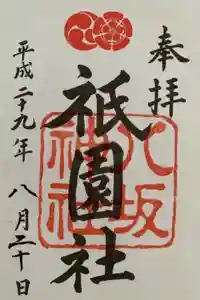 奉拝
祇園社
八坂神社
平成二十九年 八月二十日